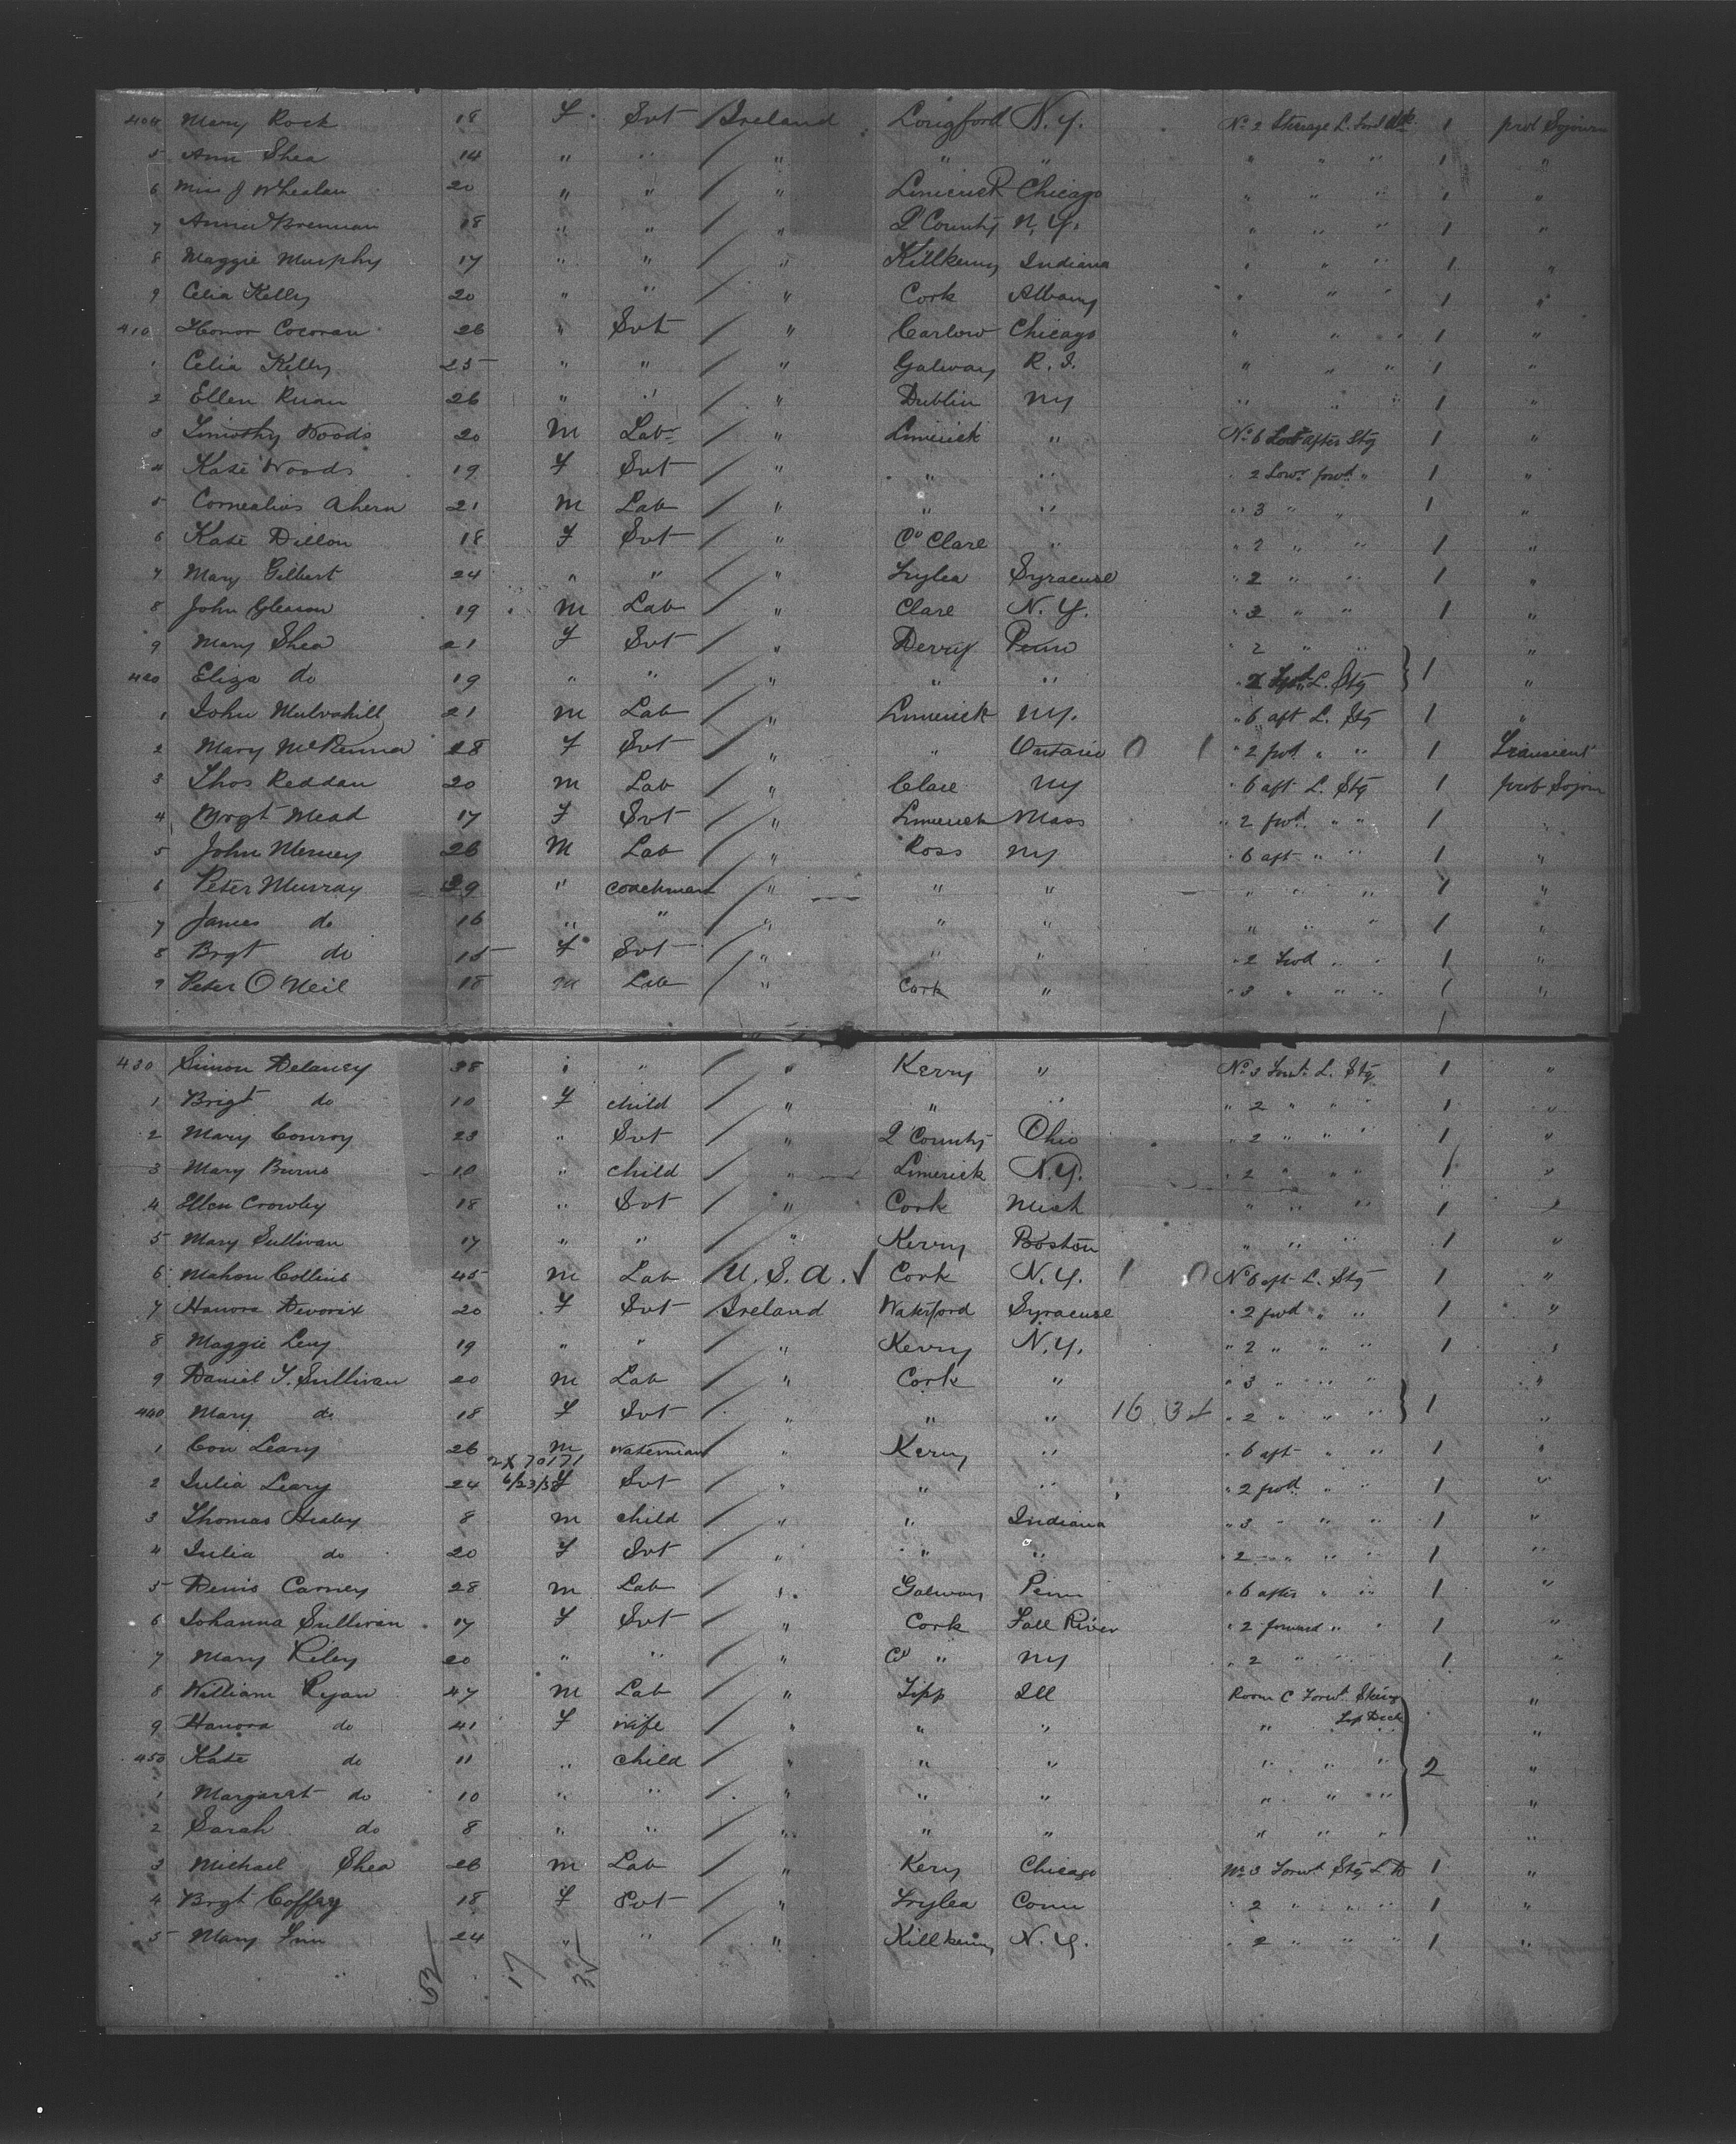 404 Mary Rock 18 F. Svt / Ireland Longford N.Y. No 2 Steerage L. Ford 1 prot Sojourn
5 Ann Shea 14 " " / " " " " " " 1 "
6 Miss J Whealan 20 " " / " Limerick Chicago " " " 1 "
7 Anna Brennan 18 " " / " Q County N.Y. " " " 1 "
8 Maggie Murphy 17 " " / " Killkenny Indiana " " " 1 "
9 Celia Kelly 20 " " / " Cork Albany " " " 1 "
410 Honor Cocoran 26 " Svt / " Carlow Chicago " " " 1 "
1 Celia Kelly 25 " " / " Galway R.I. " " " 1 "
2 Ellen Ruan 26 " " / " Dublin NY " " " 1 "
3 Timothy Woods 20 M Labr / " Limerick " No 6 after Stg 1 "
4 Kate Woods 19 F Svt / " " " " 2 Lowr forwd " 1 "
5 Cornealios Ahern 21 M Lab / " " " " 3 " " 1 "
6 Kate Dillon 18 F Svt / " Co Clare " " 2 " " 1 "
7 Mary Gilbert 24 " " / " Trylea Syracuse " 2 " " 1 "
8 John Gleason 19 M Lab / " Clare N.Y. " 3 " " 1 "
9 Mary Shea 21 F Svt / " Derry Penn " 2 " " "
420 Eliza do 19 " " / " " " " 2 L. Stg } 1 "
1 John Mulvahill 21 M Lab / " Limerick NY. " 6 aft L. Stg 1 "
2 Mary McKenna 28 F Svt / " " Ontario 0 1 " 2 fwd " " 1 Transient
3 Thos Reddan 20 M Lab / " Clare NY " 6 aft L. Stg 1 prot Sojour
4 Brgt Mead 17 F Svt / " Limerick Mass " 2 fwd " " 1 "
5 John Merney 26 M Lab / " Ross NY " 6 aft " " 1 "
6 Peter Murray 39 " Coachman / " " " " " " 1 "
7 James do 16 " " / " " " " " " 1 "
8 Brgt do 15 F Svt / " " " " 2 fwd " " 1 "
9 Peter O'Neil 18 M Lab / " Cork " " 3 " " " 1 "
430 Simon Delaney 38 " " / " Kerry " No 3 Forwt. L. Stg 1 "
1 Brigt do 10 F child / " " " " 2 " " " 1 "
2 Mary Conroy 23 " Svt / " Q County Ohio " 2 " " " 1 "
3 Mary Burns 10 " child / " Limerick N.Y. " 2 " " " 1 "
4 Ellen Crowley 18 " Svt / " Cork Mich " " " 1 "
5 Mary Sullivan 17 " " / " Kerry Boston " " " 1 "
6 Mahon Collins 45 M Lab / U.S.A. ✓ Cork N.Y. 1 0 No 6 aft L. Stg 1 "
7 Hanora Devorix 20 F Svt / Ireland Waterford Syracuse " 2 fwd " " 1 "
8 Maggie Levy 19 " " / " Kerry N.Y. " 2 " " " 1 "
9 Daniel T. Sullivan 20 M Lab / " Cork " " 3 " " " "
440 Mary do 18 F Svt / " " " 16 34 " 2 " " " } 1 "
1 Con Leary 26 M Waterman / " Kerry " " 6 aft " " 1 "
2X 70171
2 Julia Leary 24 6/23/38 F Svt / " " " " 2 fwd " " 1 "
3 Thomas Healey 8 M child / " " Indiana " 3 " " " 1 "
4 Julia do 20 F Svt / " " " " 2 " " " 1 "
5 Denis Carney 28 M Lab / " Galway Penn " 6 after " " 1 "
6 Johanna Sullivan 17 F Svt / " Cork Fall River " 2 forward " " 1 "
7 Mary Riley 20 " " / " Co " NY " 2 " " " 1 "
8 William Ryan 47 M Lab / " Tipp Ill Room C Forwt. "
9 Hanora do 41 F wife / " " " " Top Deck "
450 Kate do 11 " child / " " " " " " } 2 "
1 Margaret do 10 " " / " " " " " " "
2 Sarah do 8 " " / " " " " " " "
3 Michael Shea 26 M Lab / " Kery Chicago No 3 Forwt. Stg L. D 1 "
4 Brgt Coffey 18 F Svt / " Trylea Conn " 2 " " " 1 "
5 Mary Finn 24 " " / " Killkenny N.Y. " 2 " " " 1 "
52 17 35